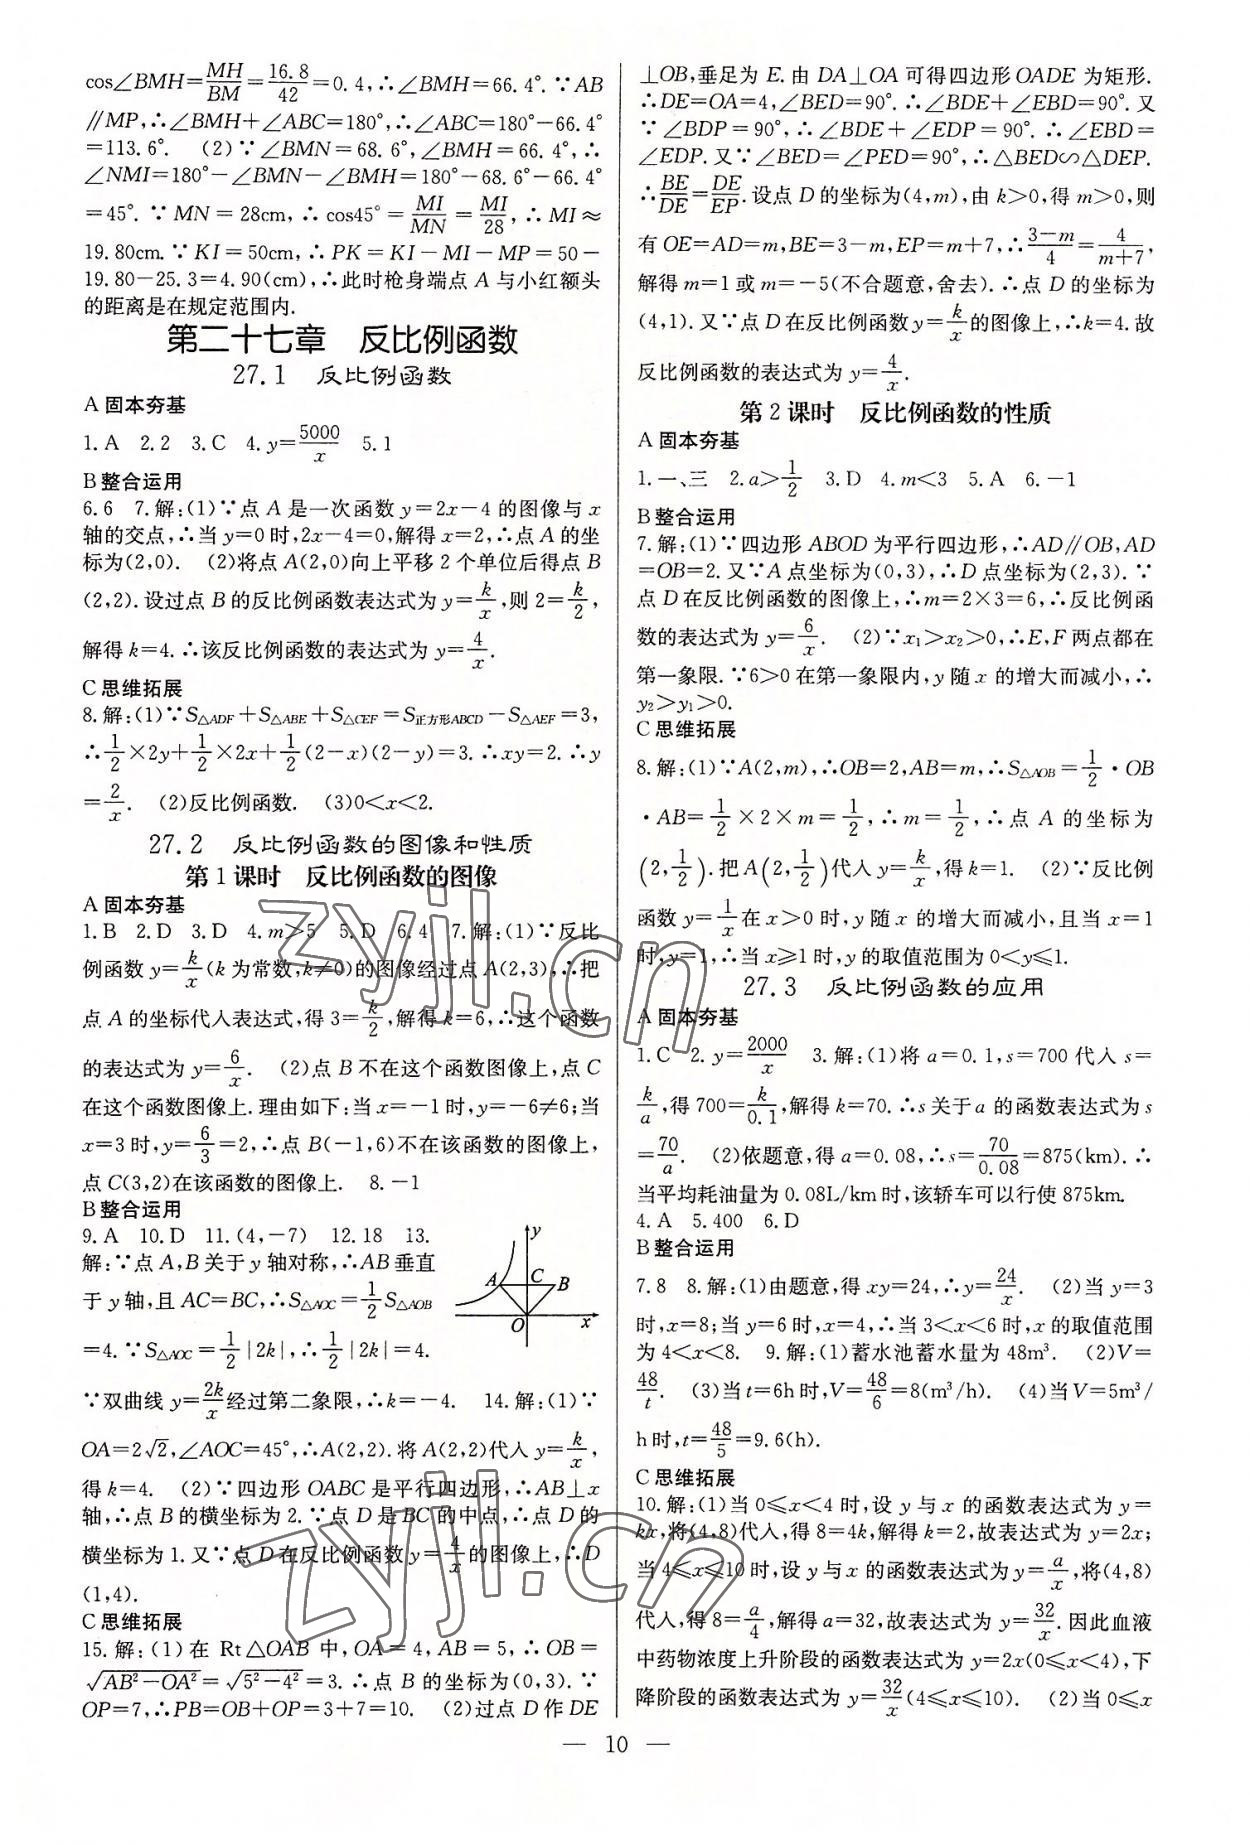 cos∠BMH=MH/BM=16.8/42=0.4,∴∠BMH=66.4°.∵AB
∥MP,∴∠BMH+∠ABC=180°,∴∠ABC=180°−66.4°
=113.6°. (2)∵∠BMN=68.6°,∠BMH=66.4°,∴
∠NMI=180°−∠BMN−∠BMH=180°−68.6°−66.4°
=45°.∵MN=28cm,∴cos45°=MI/MN=MI/28,∴MI≈
19.80cm.∵KI=50cm,∴PK=KI−MI−MP=50−
19.80−25.3=4.90(cm),∴此时枪身端点A与小红额头
的距离是在规定范围内.
第二十七章 反比例函数
27.1 反比例函数
A 固本夯基
1.A 2.2 3.C 4.y=5000/x 5.1
B 整合运用
6.6 7.解:(1)∵点A是一次函数y=2x−4的图像与x
轴的交点,∴当y=0时,2x−4=0,解得x=2,∴点A的坐
标为(2,0). (2)将点A(2,0)向上平移2个单位后得点B
(2,2).设过点B的反比例函数表达式为y=k/x,则2=k/2,
解得k=4.∴该反比例函数的表达式为y=4/x.
C 思维拓展
8.解:(1)∵S△ADF+S△ABE+S△CEF=S正方形ABCD−S△AEF=3,
∴1/2×2y+1/2×2x+1/2(2−x)(2−y)=3.∴xy=2.∴y
=2/x. (2)反比例函数. (3)0<x<2.
27.2 反比例函数的图像和性质
第1课时 反比例函数的图像
A 固本夯基
1.B 2.D 3.D 4.m>5 5.D 6.4 7.解:(1)∵反比
例函数y=k/x(k为常数,k≠0)的图像经过点A(2,3),∴把
点A的坐标代入表达式,得3=k/2,解得k=6,∴这个函数
的表达式为y=6/x. (2)点B不在这个函数图像上,点C
在这个函数图像上.理由如下:当x=−1时,y=−6≠6;当
x=3时,y=6/3=2,∴点B(−1,6)不在该函数的图像上,
点C(3,2)在该函数的图像上. 8.−1
B 整合运用
9.A 10.D 11.(4,−7) 12.18 13.
解:∵点A,B关于y轴对称,∴AB垂直
于y轴,且AC=BC,∴S△AOC=1/2S△AOB
=4.∵S△AOC=1/2|2k|,∴1/2|2k|=4.
y
A C B
O x
∵双曲线y=2k/x经过第二象限,∴k=−4. 14.解:(1)∵
OA=2√2,∠AOC=45°,∴A(2,2).将A(2,2)代入y=k/x,
得k=4. (2)∵四边形OABC是平行四边形,∴AB⊥x
轴,∴点B的横坐标为2.∵点D是BC的中点,∴点D的
横坐标为1.又∵点D在反比例函数y=4/x的图像上,∴D
(1,4).
C 思维拓展
15.解:(1)在Rt△OAB中,OA=4,AB=5,∴OB=
√(AB²−OA²)=√(5²−4²)=3.∴点B的坐标为(0,3).∵
OP=7,∴PB=OB+OP=3+7=10. (2)过点D作DE
⊥OB,垂足为E.由DA⊥OA可得四边形OADE为矩形.
∴DE=OA=4,∠BED=90°.∴∠BDE+∠EBD=90°.又
∵∠BDP=90°,∴∠BDE+∠EDP=90°.∴∠EBD=
∠EDP.又∵∠BED=∠PED=90°,∴△BED∽△DEP.
∴BE/DE=DE/EP.设点D的坐标为(4,m),由k>0,得m>0,则
有OE=AD=m,BE=3−m,EP=m+7,∴(3−m)/4=4/(m+7),
解得m=1或m=−5(不合题意,舍去).∴点D的坐标为
(4,1).又∵点D在反比例函数y=k/x的图像上,∴k=4.故
反比例函数的表达式为y=4/x.
第2课时 反比例函数的性质
A 固本夯基
1.一、三 2.a>1/2 3.D 4.m<3 5.A 6.−1
B 整合运用
7.解:(1)∵四边形ABOD为平行四边形,∴AD∥OB,AD
=OB=2.又∵A点坐标为(0,3),∴D点坐标为(2,3).∵
点D在反比例函数的图像上,∴m=2×3=6,∴反比例函
数的表达式为y=6/x. (2)∵x₁>x₂>0,∴E,F两点都在
第一象限.∵6>0在第一象限内,y随x的增大而减小,∴
y₂>y₁>0.
C 思维拓展
8.解:(1)∵A(2,m),∴OB=2,AB=m,∴S△AOB=1/2·OB
·AB=1/2×2×m=1/2,∴m=1/2,∴点A的坐标为
(2,1/2).把A(2,1/2)代入y=k/x,得k=1. (2)∵反比例
函数y=1/x在x>0时,y随x的增大而减小,且当x=1
时,y=1,∴当x≥1时,y的取值范围为0<y≤1.
27.3 反比例函数的应用
A 固本夯基
1.C 2.y=2000/x 3.解:(1)将a=0.1,s=700代入s=
k/a,得700=k/0.1,解得k=70.∴s关于a的函数表达式为s
=70/a. (2)依题意,得a=0.08,∴s=70/0.08=875(km).∴
当平均耗油量为0.08L/km时,该轿车可以行使875km.
4.A 5.400 6.D
B 整合运用
7.8 8.解:(1)由题意,得xy=24,∴y=24/x. (2)当y=3
时,x=8;当y=6时,x=4,∴当3<x<6时,x的取值范围
为4<x<8. 9.解:(1)蓄水池蓄水量为48m³. (2)V=
48/t. (3)当t=6h时,V=48/6=8(m³/h). (4)当V=5m³/
h时,t=48/5=9.6(h).
C 思维拓展
10.解:(1)当0≤x<4时,设y与x的函数表达式为y=
kx,将(4,8)代入,得8=4k,解得k=2,故表达式为y=2x;
当4≤x≤10时,设y与x的函数表达式为y=a/x,将(4,8)
代入,得8=a/4,解得a=32,故表达式为y=32/x.因此血液
中药物浓度上升阶段的函数表达式为y=2x(0≤x<4),下
降阶段的函数表达式为y=32/x(4≤x≤10). (2)当0≤x
— 10 —
zyjl.cn
zyjl.cn